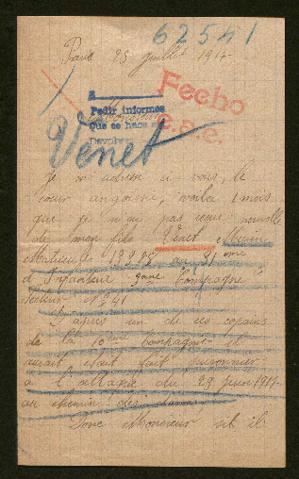 62541
Paris 25 juillet 1917
Fecho
c.a.e.
A
Pedir informes
Que se haca
Devolver
Monsieur
Venet
Je m'adresse a vous, le
cœur angoissé, voila 1 mois
que je n'ai pas reçu nouvelle
de mon fils Venet
Matricule au 81 eme
d'Infanterie 9eme Compagnie
Secteur No 41
d'apres un de ces copains
de la 10eme Compagnie il
aurait etait fait prisonnier
a l'attaque du 29 juin 1917
au chemin des dames
Donc Monsieur s'il